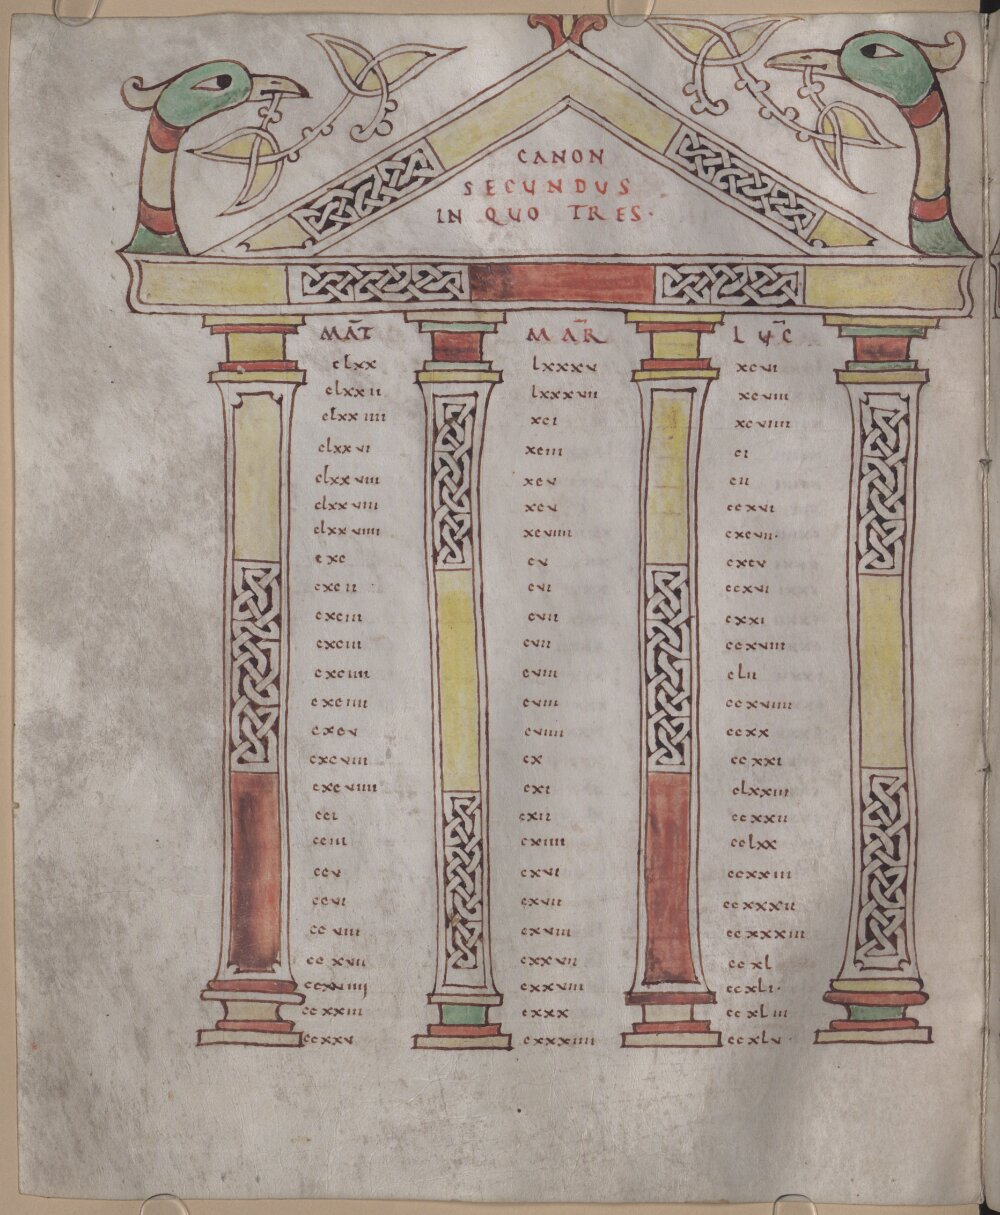 CANON
SECUNDUS
IN QUO TRES·
MAT̄ MAR̄ LUC̄
clxx lxxxv xcvi
clxxii lxxxvii xcviii
clxxiiii xci xcviiii
clxxvi xciii ci
clxxviii xcv cii
clxxviii xcv ccxvi
clxxviiii xcviiii cxcvii·
cxc cv cxcv
cxcii cvi ccxvi
cxciii cvii cxxi
cxciii cvii ccxviii
cxciiii cviii clii
cxciiii cviii ccxviiii
cxcv cviiii ccxx
cxcviii cx ccxxi
cxcviiii cxi clxxiii
cci cxii ccxxii
cciii cxiiii cclxx
ccv cxvi ccxxiii
ccvi cxvii ccxxxii
ccviii cxviii ccxxxiii
ccxvii cxxvii ccxl
ccxviiii cxxviii ccxli·
ccxxiii cxxx ccxliii
ccxxv cxxxiiii ccxlv·